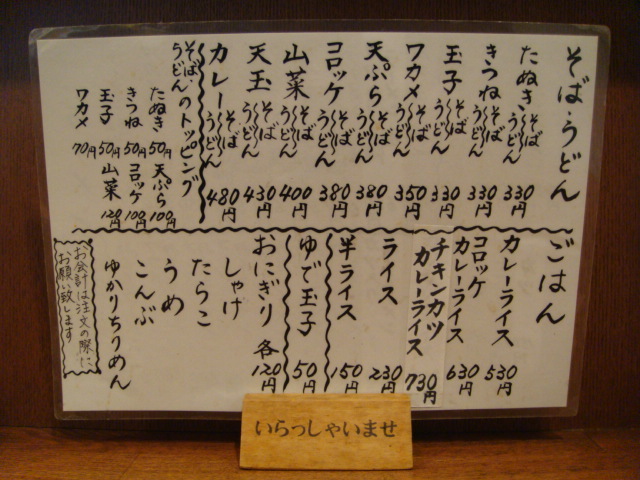 そば・うどん
たぬき そば うどん 330円
きつね そば うどん 330円
玉子 そば うどん 330円
ワカメ そば うどん 350円
天ぷら そば うどん 380円
コロッケ そば うどん 380円
山菜 そば うどん 400円
天玉 そば うどん 430円
カレー そば うどん 480円
そば・うどんのトッピング
たぬき 50円
きつね 50円
玉子 50円
ワカメ 70円
天ぷら 100円
コロッケ 100円
山菜 120円
ごはん
カレーライス 530円
コロッケカレーライス 630円
チキンカツカレーライス 730円
ライス 230円
半ライス 150円
ゆで玉子 50円
おにぎり 各120円
しゃけ
たらこ
うめ
こんぶ
ゆかりちりめん
お会計は注文の際に
お願い致します
いらっしゃいませ